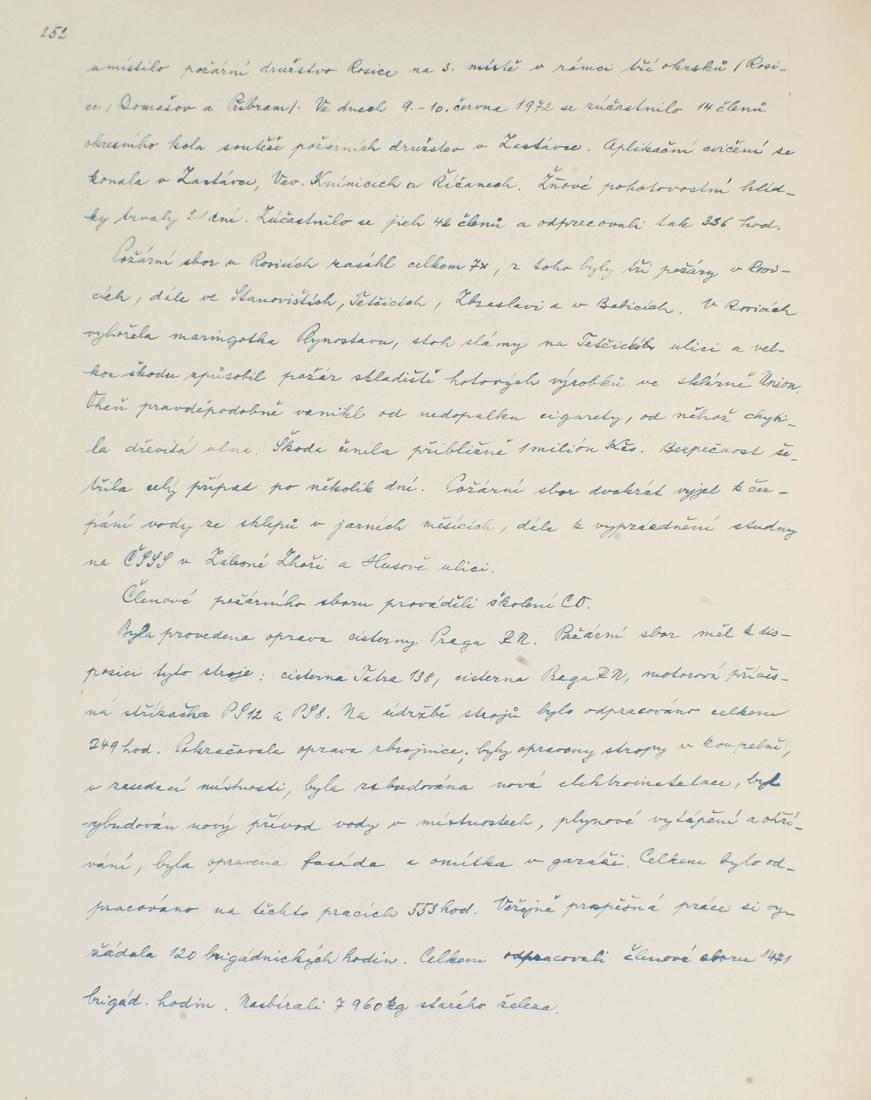 252
umístilo požární družstvo Rosice na 3. místě v rámci tří okrsků /Rosi-
ce, Domašov a Příbram/. Ve dnech 9.-10. června 1972 se zúčastnilo 14 členů
okresního kola soutěže požárních družstev v Zastávce. Aplikační cvičení se
konala v Zastávce, Vev. Knínicích a Říčanech. Žňové pohotovostní hlíd-
ky trvaly 21 dní. Zúčastnilo se jich 42 členů a odpracovali tak 336 hod.
Požární sbor v Rosicích zasáhl celkem 7x, z toho byly tři požáry v Rosi-
cích, dále ve Stanovištích, Tetčicích, Zbraslavi a v Babicích. V Rosicích
vyhořela maringotka Plynostavu, stoh slámy na Tetčické ulici a vel-
kou škodu způsobil požár skladiště hotových výrobků ve sklárně Union.
Oheň pravděpodobně vznikl od nedopalku cigarety, od něhož chyti-
la dřevitá vlna. Škoda činila přibližně 1 milión Kčs. Bezpečnost še-
třila celý případ po několik dní. Požární sbor dvakrát vyjel k čer-
pání vody ze sklepů v jarních měsících, dále k vyprazdnění studny
na ČSSS v Zálesné Zhoři a Husově ulici.
Členové požárního sboru prováděli školení CO.
Byla provedena oprava cisterny Praga RN. Požární sbor měl k dis-
posici tyto stroje: cisterna Tatra 138, cisterna Praga RN, motorová přívěs-
ná stříkačka PS12 a PS8. Na údržbě strojů bylo odpracováno celkem
249 hod. Pokračovala oprava zbrojnice; byly opraveny stropy v koupelně,
v zasedací místnosti, byla zabudována nová elektroinstalace, byl
vybudován nový přívod vody v místnostech, plynové vytápění a ohří-
vání, byla opravena fasáda a omítka v garáži. Celkem bylo od-
pracováno na těchto pracích 553 hod. Veřejně prospěšná práce si vy-
žádala 120 brigádnických hodin. Celkem odpracovali členové sboru 1471
brigád. hodin. Nasbírali 7 960 kg starého železa.